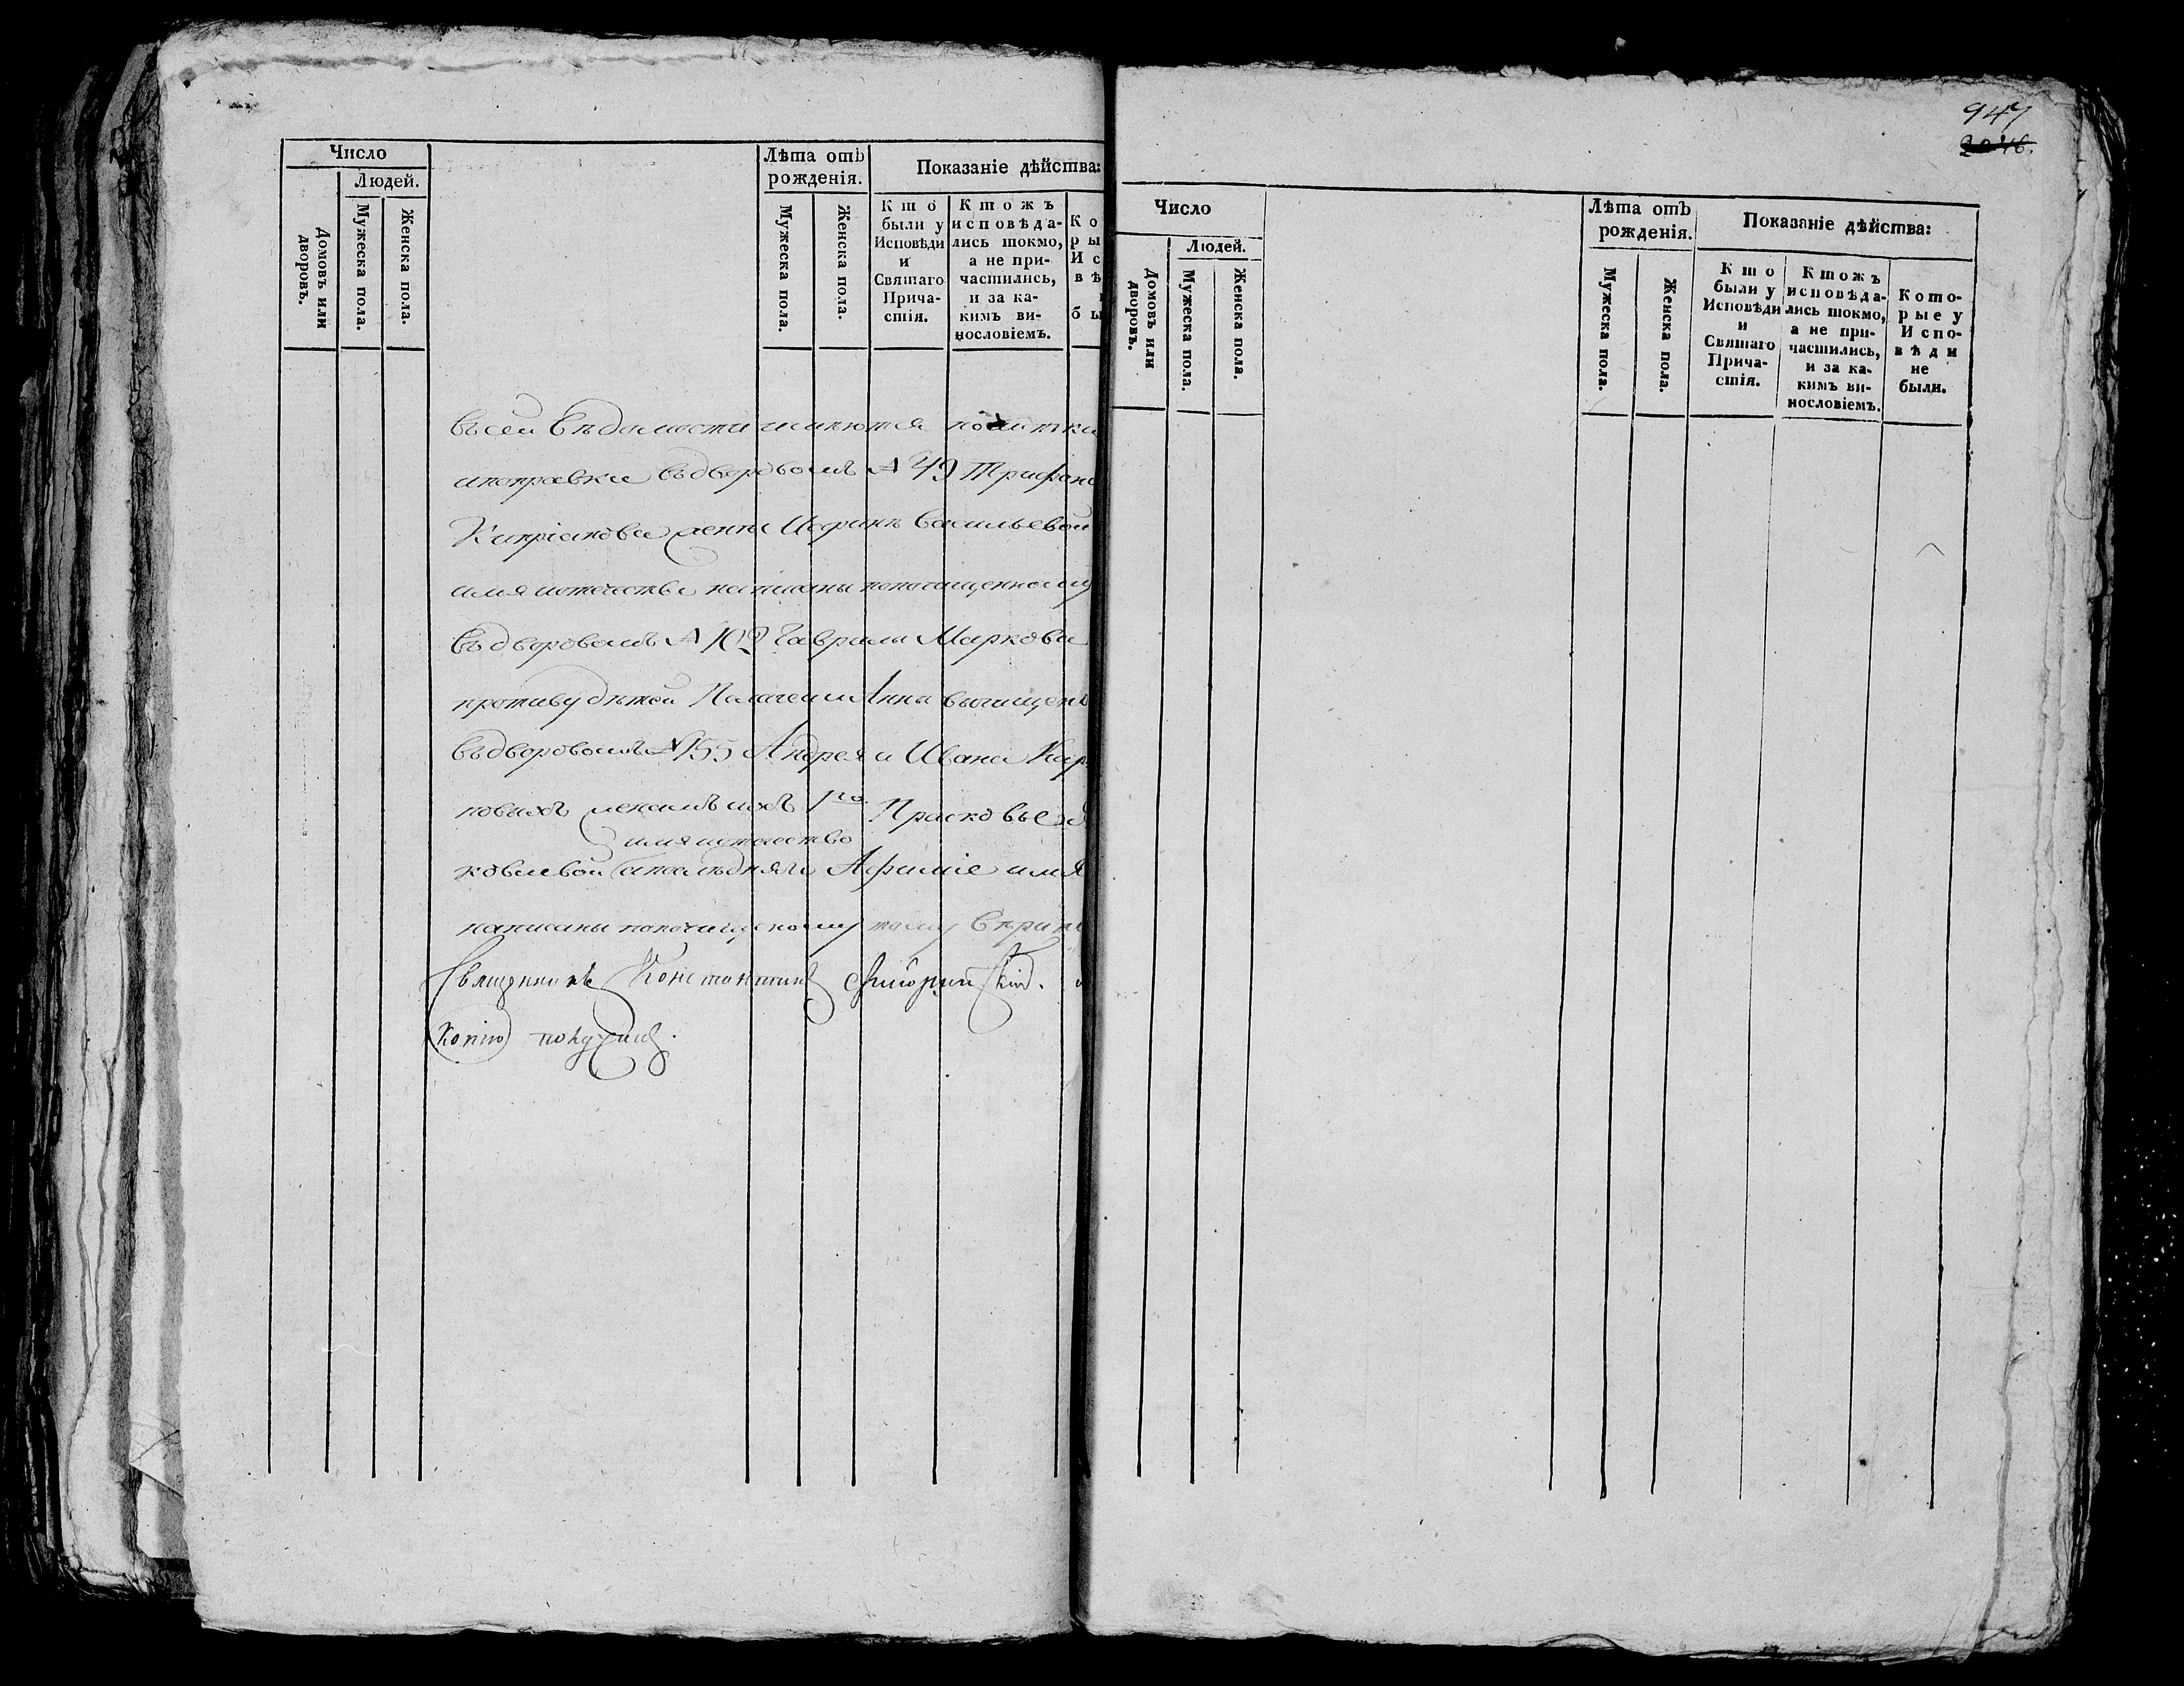 Число
Людей.
Домовъ или дворовъ.
Мужеска пола.
Женска пола.
Лѣта отъ рожденія.
Мужеска пола.
Женска пола.
Показаніе дѣйства:
Кто были у Исповѣди и Святаго Причастія.
Ктожъ исповѣдались токмо, а не причастились, и за какимъ винословіемъ.
въ сей вѣдомости имеются
и поправки въ дворовомъ № 49 Трифона
Кипріанова жены Васильевой
имя и отечество написаны по почищенному
въ дворовомъ № 102 Гаврилы Маркова
противу дѣтей Палагеи и Анны вычищено
въ дворовомъ № 155 Андрея и Ивана Кар
повыхъ женамъ ихъ 1го Прасковье
имя и отечество
ковлевой а последняго Афиміе имя
написаны по почищеному тому
Священникъ Константинъ
Копію
947
Число
Людей.
Домовъ или дворовъ.
Мужеска пола.
Женска пола.
Лѣта отъ рожденія.
Мужеска пола.
Женска пола.
Показаніе дѣйства:
Кто были у Исповѣди и Святаго Причастія.
Ктожъ исповѣдались токмо, а не причастились, и за какимъ винословіемъ.
Которые у Исповѣди не были.